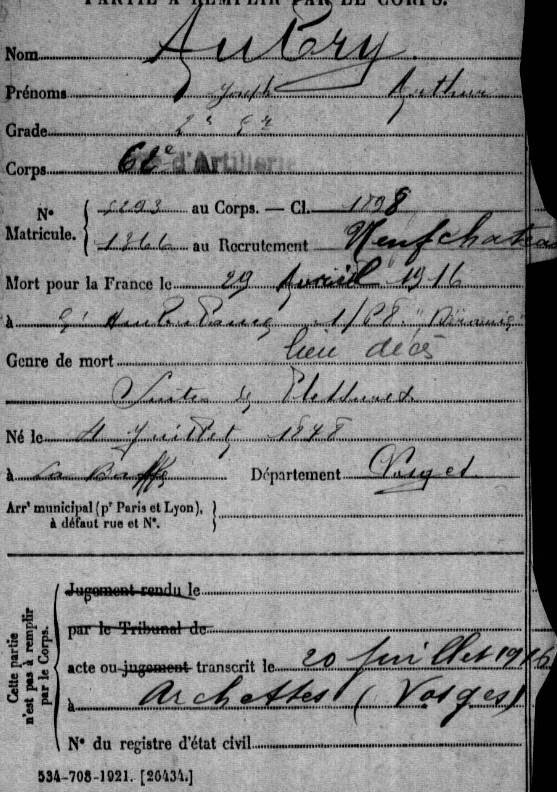 PARTIE À REMPLIR PAR LE CORPS.
Nom Aubry
Prénoms Joseph Arthur
Grade 2e
Corps 62e d'Artillerie
N° Matricule. { 5293 au Corps. — Cl. 1898
1366 au Recrutement Neufchateau
Mort pour la France le 29 Avril 1916
à
lieu décès
Genre de mort
Suites de Blessures
Né le 4 Juillet 1878
à La Baffe Département Vosges
Arrt municipal (pr Paris et Lyon), à défaut rue et N°. }
Cette partie n'est pas à remplir par le Corps.
Jugement rendu le
par le Tribunal de
acte ou jugement transcrit le 20 juillet 1916
à Archettes (Vosges)
N° du registre d'état civil
534-708-1921. [26434.]